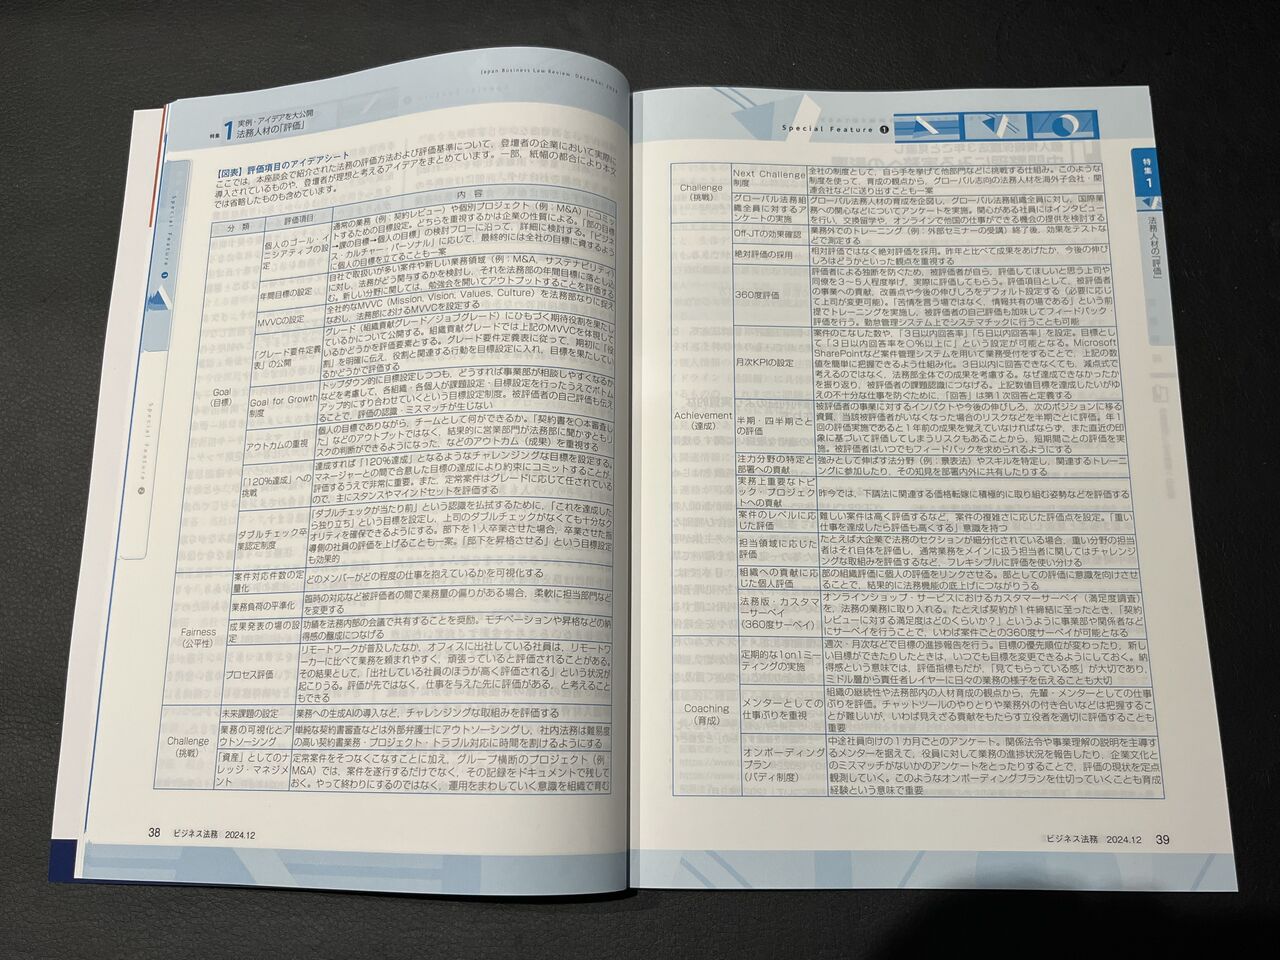 Japan Business Law Review December 2024
特集1 実例・アイデアを大公開
法務人材の「評価」
【図表】評価項目のアイデアシート
ここでは、本座談会で紹介された法務の評価方法および評価基準について、登壇者の企業において実際に
導入されているものや、登壇者が理想と考えるアイデアをまとめています。一部、紙幅の都合により本文
では省略したものも含めています。
分類 評価項目 内容
Goal
(目標)
個人のゴール・イ
ニシアティブの設
定
通常の業務(例:契約レビュー)や個別プロジェクト(例:M&A)にコミッ
トするための目標設定。どちらを重視するかは企業の性質による。「部の目標
→課の目標→個人の目標」の検討フローに沿って、詳細に検討する。「ビジネ
ス・カルチャー・パーソナル」に応じて、最終的には全社の目標に資するよう
に個人の目標を立てることも一案
年間目標の設定
自社で取扱いが多い案件や新しい業務領域(例:M&A、サステナビリティ)
に対し、法務がどう関与するかを検討し、それを法務部の年間目標に落とし込
む。新しい分野に関しては、勉強会を開いてアウトプットすることを評価する
MVVCの設定
全社的なMVVC(Mission, Vision, Values, Culture)を法務部なりに捉え
なおし、法務部におけるMVVCを設定する
「グレード要件定義
表」の公開
グレード(組織貢献グレード/ジョブグレード)にひもづく期待役割を果たし
ているかについて公開する。組織貢献グレードでは上記のMVVCを体現して
いるかどうかを評価要素とする。グレード要件定義表に従って、期初に「役
割」を明確に伝え、役割と関連する行動を目標設定に入れ、目標を果たしてい
るかどうかで評価する
Goal for Growth
制度
トップダウン的に目標設定しつつも、どうすれば事業部が相談しやすくなるか
などを考慮して、各組織・各個人が課題設定・目標設定を行ったうえでボトム
アップ的にすり合わせていくという目標設定制度。被評価者の自己評価も伝え
ることで、評価の認識・ミスマッチが生じない
アウトカムの重視
個人の目標でありながら、チームとして何ができるか。「契約書を○本審査し
た」などのアウトプットではなく、結果的に営業部門が法務部に聞かずともリ
スクの判断ができるようになった、などのアウトカム(成果)を重視する
「120%達成」への
挑戦
達成すれば「120%達成」となるようなチャレンジングな目標を設定する。
マネージャーとの間で合意した目標の達成により約束にコミットすることが、
評価するうえで非常に重要。また、定常案件はグレードに応じて任されている
ので、主にスタンスやマインドセットを評価する
ダブルチェック卒
業認定制度
「ダブルチェックが当たり前」という認識を払拭するために、「これを達成した
ら独り立ち」という目標を設定し、上司のダブルチェックがなくても十分なク
オリティを確保できるようにする。部下を1人卒業させた場合、卒業させた指
導側の社員の評価を上げることも一案。「部下を昇格させる」という目標設定
も効果的
Fairness
(公平性)
案件対応件数の定
量化
どのメンバーがどの程度の仕事を抱えているかを可視化する
業務負荷の平準化
臨時の対応など被評価者の間で業務量の偏りがある場合、柔軟に担当部門など
を変更する
成果発表の場の設
定
功績を法務内部の会議で共有することを奨励。モチベーションや昇格などの納
得感の醸成につなげる
プロセス評価
リモートワークが普及したなか、オフィスに出社している社員は、リモートワ
ーカーに比べて業務を頼まれやすく、頑張っていると評価されることがある。
その結果として、「出社している社員のほうが高く評価される」という状況が
起こりうる。評価が先ではなく、仕事を与えた先に評価がある、と考えること
もできる
Challenge
(挑戦)
未来課題の設定 業務への生成AIの導入など、チャレンジングな取組みを評価する
業務の可視化とア
ウトソーシング
単純な契約書審査などは外部弁護士にアウトソーシングし、社内法務は難易度
の高い契約書業務・プロジェクト・トラブル対応に時間を割けるようにする
「資産」としてのナ
レッジ・マネジメ
ント
定常案件をそつなくこなすことに加え、グループ横断のプロジェクト(例:
M&A)では、案件を遂行するだけでなく、その記録をドキュメントで残して
おく。やって終わりにするのではなく、運用をまわしていく意識を組織で育む
38 ビジネス法務 2024.12
Special Feature ❶
Special Feature ❷
Special Feature ❶
特集1
法務人材の「評価」
Challenge
(挑戦)
Next Challenge
制度
全社の制度として、自ら手を挙げて他部門などに挑戦する仕組み。このような
制度を使って、育成の観点から、グローバル志向の法務人材を海外子会社・関
連会社などに送り出すことも一案
グローバル法務組
織全員に対するア
ンケートの実施
グローバル法務人材の育成を企図し、グローバル法務組織全員に対し、国際業
務への関心などについてアンケートを実施。関心がある社員にはインタビュー
を行い、交換留学や、オンラインで他国の仕事ができる機会の提供を検討する
Achievement
(達成)
Off-JTの効果確認
業務外でのトレーニング(例:外部セミナーの受講)終了後、効果をテストな
どで測定する
絶対評価の採用
相対評価ではなく絶対評価を採用。昨年と比べて成果をあげたか、今後の伸び
しろはどうかといった観点を重視する
360度評価
評価者による独断を防ぐため、被評価者が自ら、評価してほしいと思う上司や
同僚を3~5人程度挙げ、実際に評価してもらう。評価項目として、被評価者
の事業への貢献、改善点や今後の伸びしろをデフォルト設定する(必要に応じ
て上司が変更可能)。「苦情を言う場ではなく、情報共有の場である」という前
提でトレーニングを実施し、被評価者の自己評価も加味してフィードバック・
評価を行う。勤怠管理システム上でシステマチックに行うことも可能
月次KPIの設定
案件のこなした数や、「3日以内回答率」「5日以内回答率」を設定。目標とし
て「3日以内回答率を○%以上に」という設定が可能となる。Microsoft
SharePointなど案件管理システムを用いて業務受付をすることで、上記の数
値を簡単に把握できるよう仕組み化。3日以内に回答できなくても、減点式で
考えるのではなく、法務部全体での成果を考慮する。なぜ達成できなかったか
を振り返り、被評価者の課題認識につなげる。上記数値目標を達成したいがゆ
えの不十分な仕事を防ぐために、「回答」は第1次回答と定義する
半期・四半期ごと
の評価
被評価者の事業に対するインパクトや今後の伸びしろ、次のポジションに移る
資質、当該被評価者がいなくなった場合のリスクなどを半期ごとに評価。年1
回の評価実施であると1年前の成果を覚えていなければならず、また直近の印
象に基づいて評価してしまうリスクもあることから、短期間ごとの評価を実
施。被評価者はいつでもフィードバックを求められるようにする
注力分野の特定と
部署への貢献
強みとして伸ばす法分野(例:景表法)やスキルを特定し、関連するトレーニ
ングに参加したり、その知見を部署内外に共有したりする
実務上重要なトピ
ック・プロジェク
トへの貢献
昨今では、下請法に関連する価格転嫁に積極的に取り組む姿勢などを評価する
案件のレベルに応
じた評価
難しい案件は高く評価するなど、案件の複雑さに応じた評価点を設定。「重い
仕事を達成したら評価も高くする」意識を持つ
担当領域に応じた
評価
たとえば大企業で法務のセクションが細分化されている場合、重い分野の担当
者はそれ自体を評価し、通常業務をメインに扱う担当者に関してはチャレンジ
ングな取組みを評価するなど、フレキシブルに評価を使い分ける
組織への貢献に応
じた個人評価
部の組織評価に個人の評価をリンクさせる。部としての評価に意識を向けさせ
ることで、結果的に法務機能の底上げにつながりうる
法務版・カスタマ
ーサーベイ
(360度サーベイ)
オンラインショップ・サービスにおけるカスタマーサーベイ(満足度調査)
を、法務の業務に取り入れる。たとえば契約が1件締結に至ったとき、「契約
レビューに対する満足度はどのくらいか?」というように事業部や関係者など
にサーベイを行うことで、いわば案件ごとの360度サーベイが可能となる
Coaching
(育成)
定期的な1on1ミー
ティングの実施
週次・月次などで目標の進捗報告を行う。目標の優先順位が変わったり、新し
い目標ができたりしたときは、いつでも目標を変更できるようにしておく。納
得感という意味では、評価指標もだが、「見てもらっている感」が大切であり、
ミドル層から責任者レイヤーに日々の業務の様子を伝えることも大切
メンターとしての
仕事ぶりを重視
組織の継続性や法務部内の人材育成の観点から、先輩・メンターとしての仕事
ぶりを評価。チャットツールのやりとりや業務外の付き合いなどは把握するこ
とが難しいが、いわば見えざる貢献をもたらす立役者を適切に評価することも
重要
オンボーディング
プラン
(バディ制度)
中途社員向けの1カ月ごとのアンケート。関係法令や事業理解の説明を主導す
るメンターを据えて、役員に対して業務の進捗状況を報告したり、企業文化と
のミスマッチがないかのアンケートをとったりすることで、評価の現状を定点
観測していく。このようなオンボーディングプランを仕切っていくことも育成
経験という意味で重要
ビジネス法務 2024.12 39